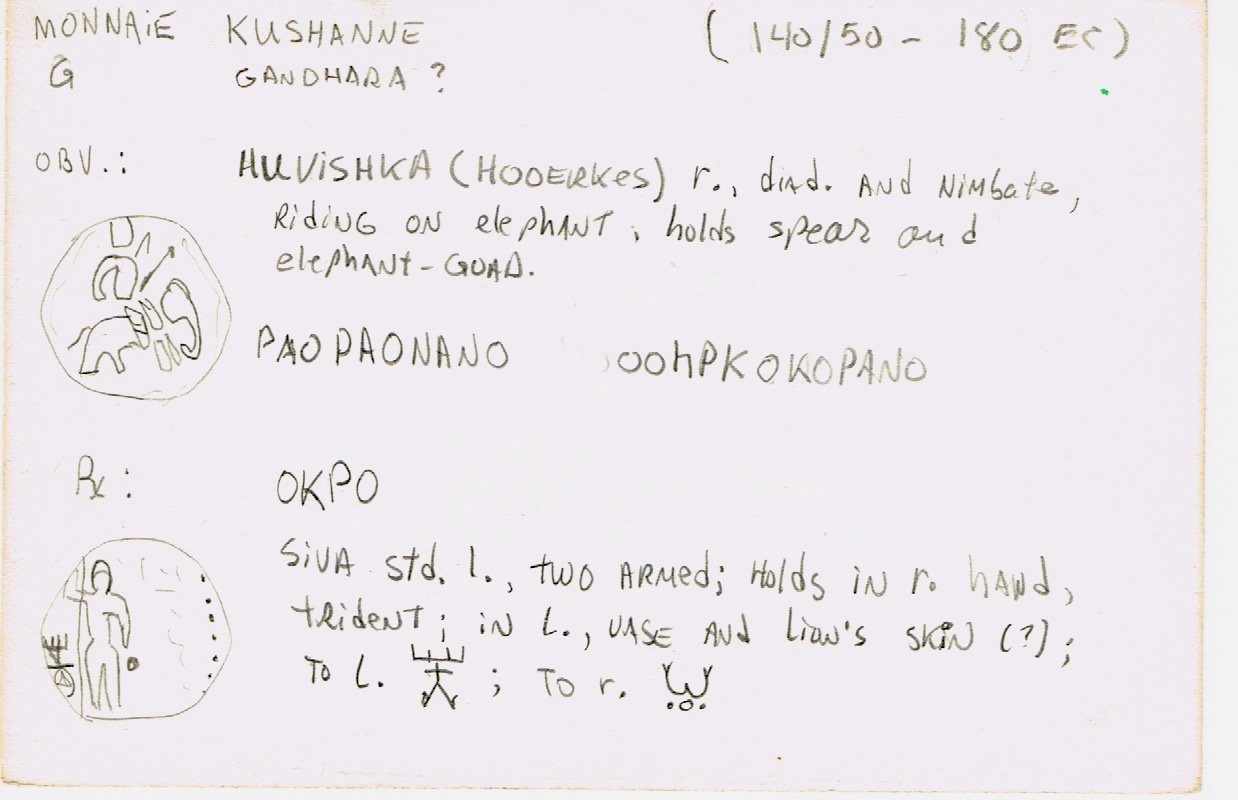 MONNAiE KUSHANNE (140/50 - 180 EC)
G GANDHARA ?
OBV.: HUViSHKA (HOOERKes) r., diad. AND NiMbate,
RidiNG ON elepHANT ; holds spear and
elepHANt-GOAD.
PAOPAONANO OOhPKOKOPANO
Rx : OKPO
SiVA std. l., tWO ARMed; Holds iN r. hANd,
tRideNT ; iN L., VASE ANd LioN's SKiN (?) ;
To L. ; To r.